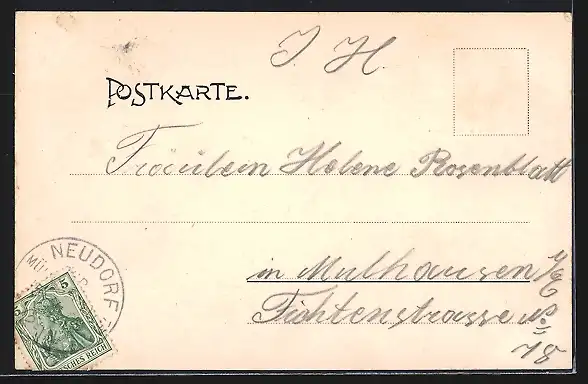 J. H.
POSTKARTE.
Fräulein Helene Rosenblatt
in Mulhausen i/E
Fichtenstrasse No
18
NEUDORF
MÜ
5
5
DEUTSCHES REICH